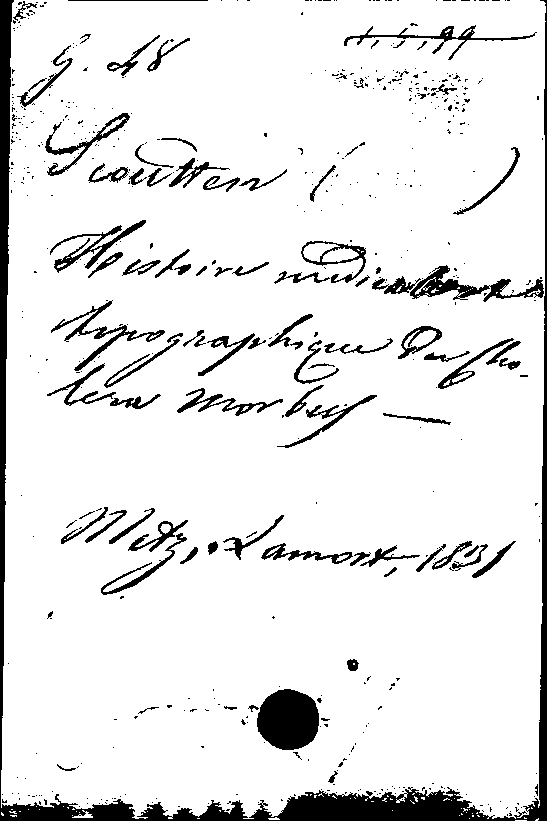 G. 48 1,5,99
Scoutten ( )
Histoire medicale et
topographique du Cho-
lera morbus —
Metz, Lamort, 1831